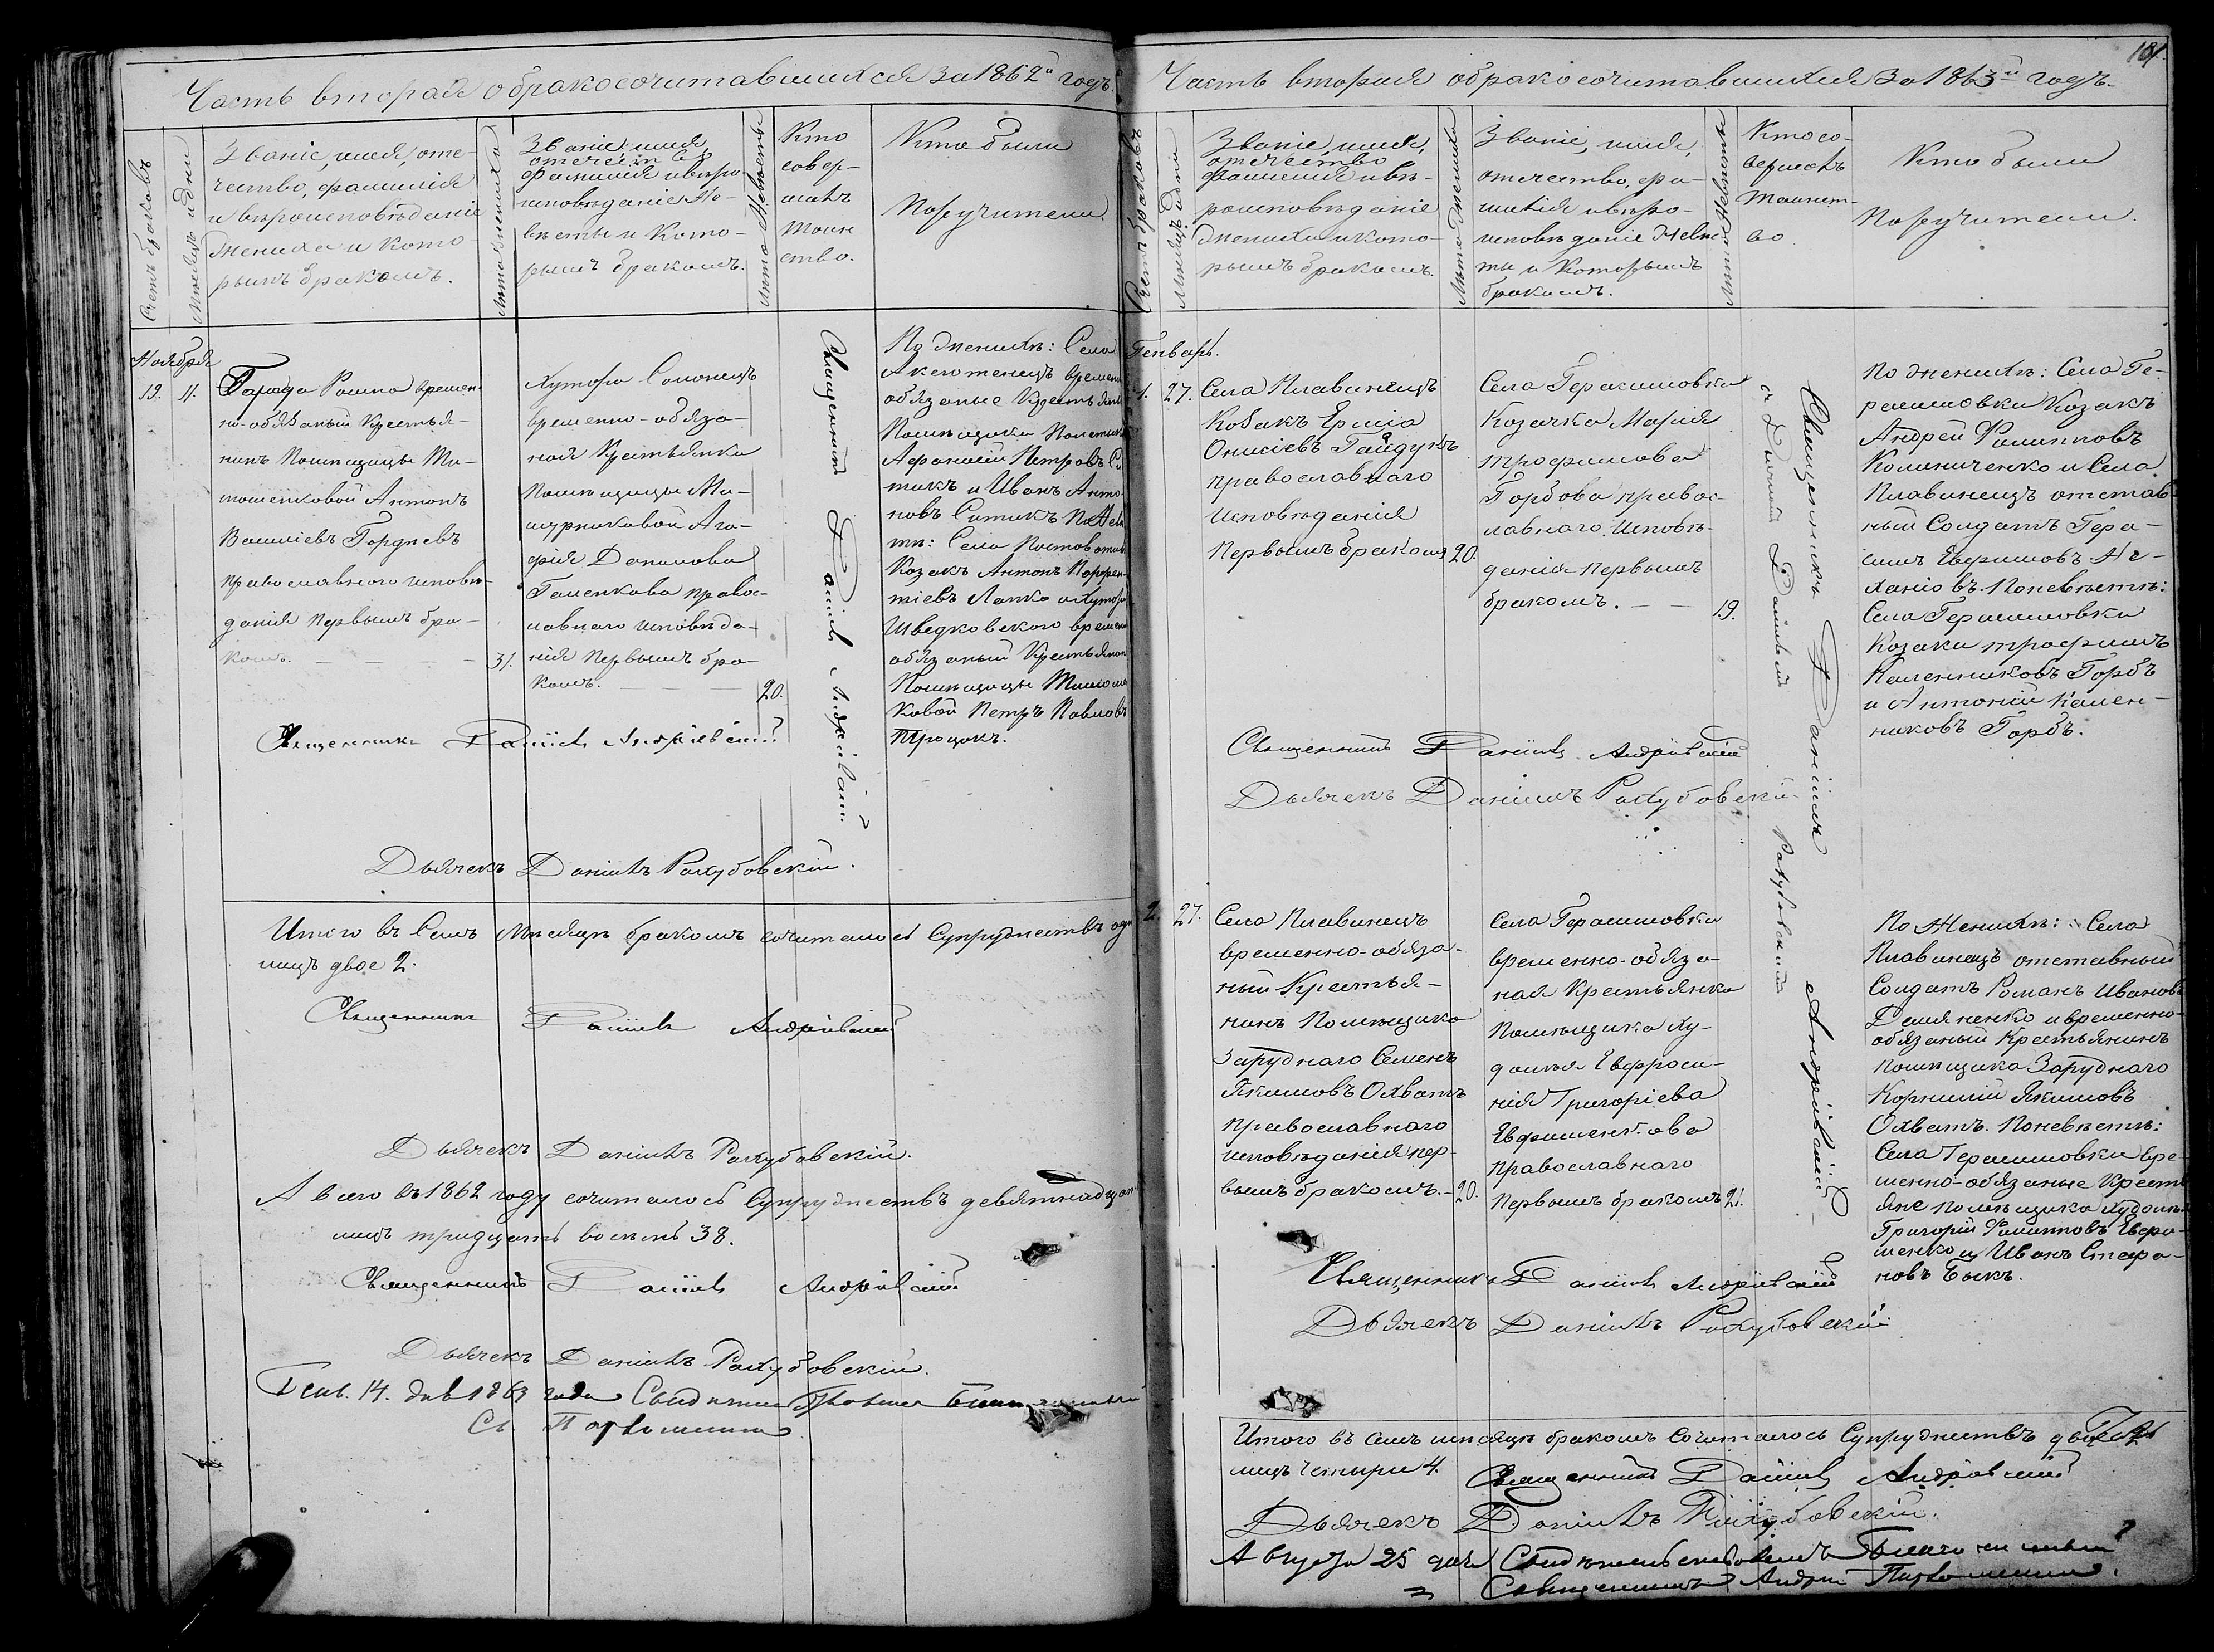 Часть вторая о бракосочитавшихся за 1862й годъ.
Счетъ браковъ
Месяцъ и дни
Званіе, имя, оте-
чество, фамилія
и вероисповѣданіе
жениха и кото-
рымъ бракомъ.
Лета жениха
Званіе, имя,
отечество
фамилія и вѣро
исповѣданіе Не-
вѣсты и Кото-
рымъ бракомъ.
Лета Невѣсты
Кто
совер-
шалъ
Таин
ство.
Кто были
Поручители.
Ноября
19. 11. Города Ромна времен-
но-обязаный Крестья-
нинъ Помѣщицы Ти-
мошенковой Антонъ
Василіевъ Гордѣевъ
православнаго исповѣ-
данія первымъ бра-
комъ. 31.
Хутора Солонецъ
временно-обяза-
ная Крестьянка
Помѣщицы Ма-
журниковой Ага-
фія Данилова
Галенкова правос-
лавнаго исповѣда-
нія первымъ бра-
комъ. 20.
Священникъ Даніилъ Андріевскій
По женихѣ: Села
обязаные Крестьяне
Помѣщика
Афанасій Петровъ
и Иванъ Анто-
новъ Ситикъ По Невѣ
тѣ: Села
Козакъ Антонъ Порфен-
тіевъ Лапко и Хутора
Шведковского времен
обязаный Крестьянин
Помѣщицы Тимошен
ковой Петръ Павловъ
Троцокъ.
Священникъ Даніилъ Андріевскій
Дьячекъ Даніилъ Рахубовскій.
Итого въ Семъ Месяцѣ бракомъ сочиталось Супружествъ одн
лицъ двое 2.
Священникъ Даніилъ Андріевскій
Дьячекъ Даніилъ Рахубовскій.
А всего въ 1862 году сочиталось Супружествъ девятнадцат
лицъ тридцать восемь 38.
Священникъ Даніилъ Андріевскій
Дьячекъ Даніилъ Рахубовскій.
Генв. 14. дня 1863 года
Св. Пархоменко
181.
Часть вторая о бракосочитавшихся за 1863й годъ.
Счетъ браковъ
Месяцъ и дни
Званіе, имя,
отечество
фамилія и вѣ-
роисповѣданіе
жениха и кото-
рымъ бракомъ.
Лета жениха
Званіе, имя,
отечество, фа-
милія и вѣро-
исповѣданіе Невѣ
ты и Которымъ
бракомъ.
Лета Невѣсты
Кто со-
вершалъ
Таинст-
во.
Кто были
Поручители.
Генварь.
1. 27. Села Плавинищъ
Козакъ Ермія
Онисіевъ Гайдукъ
православнаго
исповѣданія
первымъ бракомъ 20.
Села Герасимовки
Козачка Марія
Трофимова
Горбова правос-
лавнаго исповѣ-
данія первымъ
бракомъ. 19.
Священникъ Даніилъ Андріевскій
съ Дьячкомъ Даніиломъ Рахубовскимъ
По женихѣ: Села Ге-
расимовки Козакъ
Андрей Филиповъ
Колиниченко и Села
Плавинищъ отстав-
ный Солдатъ Гера-
симъ Ефимовъ
По невѣстѣ:
Села Герасимовки
Козаки Трофимъ
Калениковъ Горбъ
и Антоній Кален-
никовъ Горбъ.
Священникъ Даніилъ Андріевскій
Дьячекъ Даніилъ Рахубовскій
2. 27. Села Плавинищъ
временно-обяза-
ный Крестья-
нинъ Помѣщика
Заруднаго Семенъ
Якимовъ Охватъ
православнаго
исповѣданія пер-
вымъ бракомъ. 20.
Села Герасимовки
временно-обяза-
ная Крестьянка
Помѣщика Ху-
долѣя Евфроси-
нія Григоріева
Ефименкова
православнаго
первымъ бракомъ 21.
По Женихѣ: Села
Плавинищъ отставный
Солдатъ Романъ Ивановъ
Демяненко и временно-
обязаный Крестьянинъ
помѣщика Заруднаго
Корнилій Якимовъ
Охватъ. По невѣстѣ:
Села Герасимовки вре-
менно-обязаные Крест
яне помѣщика Худолѣя
Григорій Филиповъ Ефи-
менко и Иванъ Стефа-
новъ Быкъ.
Священникъ Даніилъ Андріевскій
Дьячекъ Даніилъ Рахубовскій
Итого въ семъ месяцѣ бракомъ сочиталось Супружествъ два 2.
лицъ четыри 4. Священникъ Даніилъ Андріевскій
Дьячекъ Даніилъ Рахубовскій.
Августа 25 дня Свидѣтельствовалъ Благочинный
Священникъ Андрей Пархоменко.